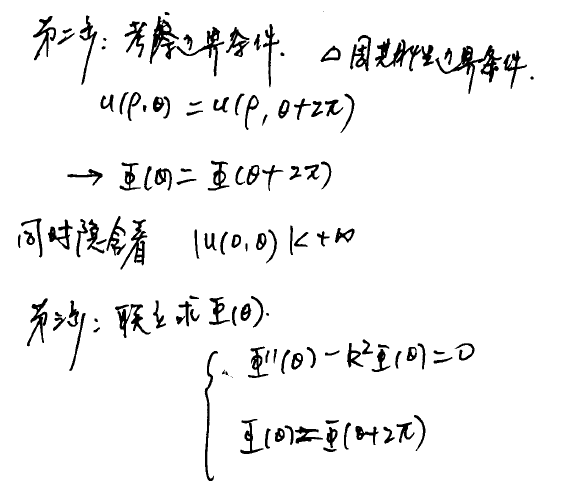 第二步: 考察边界条件. △周期性边界条件.
u(ρ,θ) = u(ρ, θ+2π)
→ Φ(θ) = Φ(θ+2π)
同时隐含着 |u(0,θ)|<+∞
第三步: 联立求 Φ(θ).
Φ''(θ) - k²Φ(θ) = 0
Φ(θ) = Φ(θ+2π)